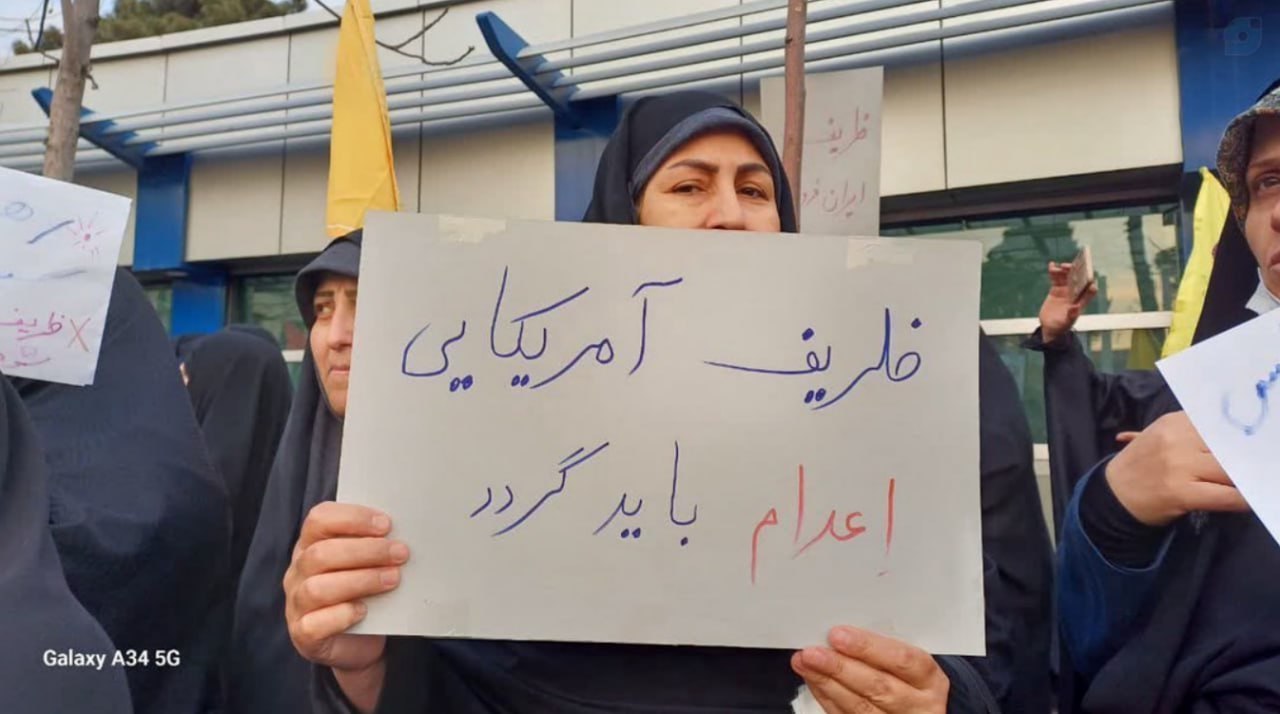 ظریف آمریکایی
إعدام باید گردد
ظریف
ایران
X ظریف
Galaxy A34 5G